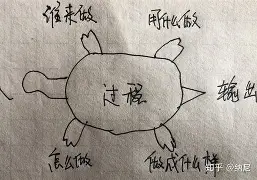 谁来做 用什么做
过程 输出
怎么做 做成什么样
知乎 @纳尼